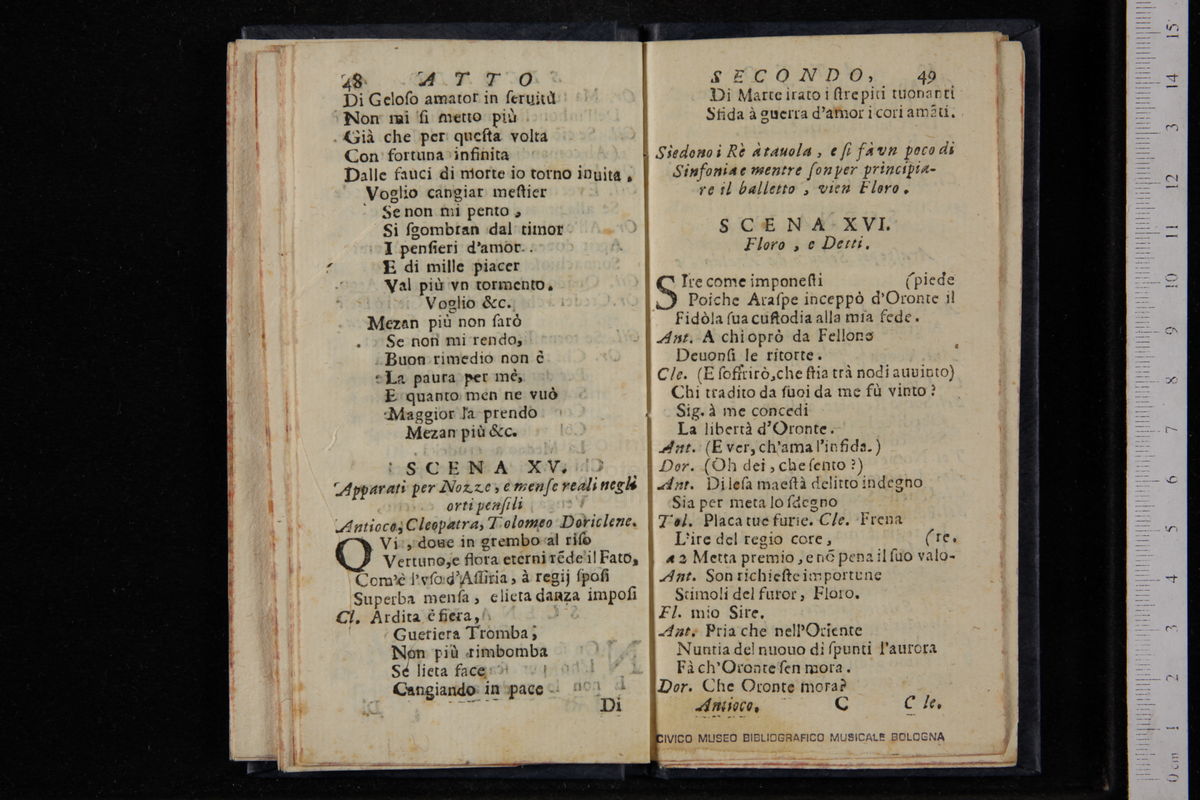 28 ATTO
Di Geloſo amator in ſeruitù
Non mi ſi metto più
Già che per queſta volta
Con fortuna infinita
Dalle fauci di morte io torno in vita.
Voglio cangiar meſtier
Se non mi pento,
Si ſgombran dal timor
I penſieri d'amor.
E di mille piacer
Val più vn tormento.
Voglio &c.
Mezan più non ſarò
Se non mi rendo,
Buon rimedio non è
La paura per mè,
E quanto men ne vuò
Maggior la prendo
Mezan più &c.
SCENA XV.
Apparati per Nozze, e menſe reali negli
orti penſili
Antioco, Cleopatra, Tolomeo Doriclene.
QVi, doue in grembo al riſo
Vertuno, e flora eterni rēde il Fato,
Com'è l'vſo d'Aſſiria, à regij ſpoſi
Superba menſa, e lieta danza impoſi
Cl. Ardita è fiera,
Gueriera Tromba,
Non più rimbomba
Se lieta face
Cangiando in pace
Di
SECONDO, 49
Di Marte irato i ſtrepiti tuonanti
Sfida à guerra d'amor i cori amāti.
Siedono i Rè à tauola, e ſi fà vn poco di
Sinfonia e mentre ſon per principia-
re il balletto, vien Floro.
SCENA XVI.
Floro, e Detti.
SIre come imponeſti (piede
Poiche Araſpe inceppò d'Oronte il
Fidòla ſua cuſtodia alla mia fede.
Ant. A chi oprò da Fellone
Deuonſi le ritorte.
Cle. (E ſoffrirò, che ſtia trà nodi auuinto)
Chi tradito da ſuoi da me fù vinto?
Sig. à me concedi
La libertà d'Oronte.
Ant. (E ver, ch'ama l'infida.)
Dor. (Oh dei, che ſento?)
Ant. Di leſa maeſtà delitto indegno
Sia per meta lo ſdegno
Tol. Placa tue furie. Cle. Frena
L'ire del regio core, (re.
a 2 Metta premio, e nō pena il ſuo valo-
Ant. Son richieſte importune
Stimoli del furor, Floro.
Fl. mio Sire.
Ant. Pria che nell'Oriente
Nuntia del nuouo dì ſpunti l'aurora
Fà ch'Oronte ſen mora.
Dor. Che Oronte mora?
Antioco. C Cle.
CIVICO MUSEO BIBLIOGRAFICO MUSICALE BOLOGNA
0 cm 1 2 3 4 5 6 7 8 9 10 11 12 13 14 15